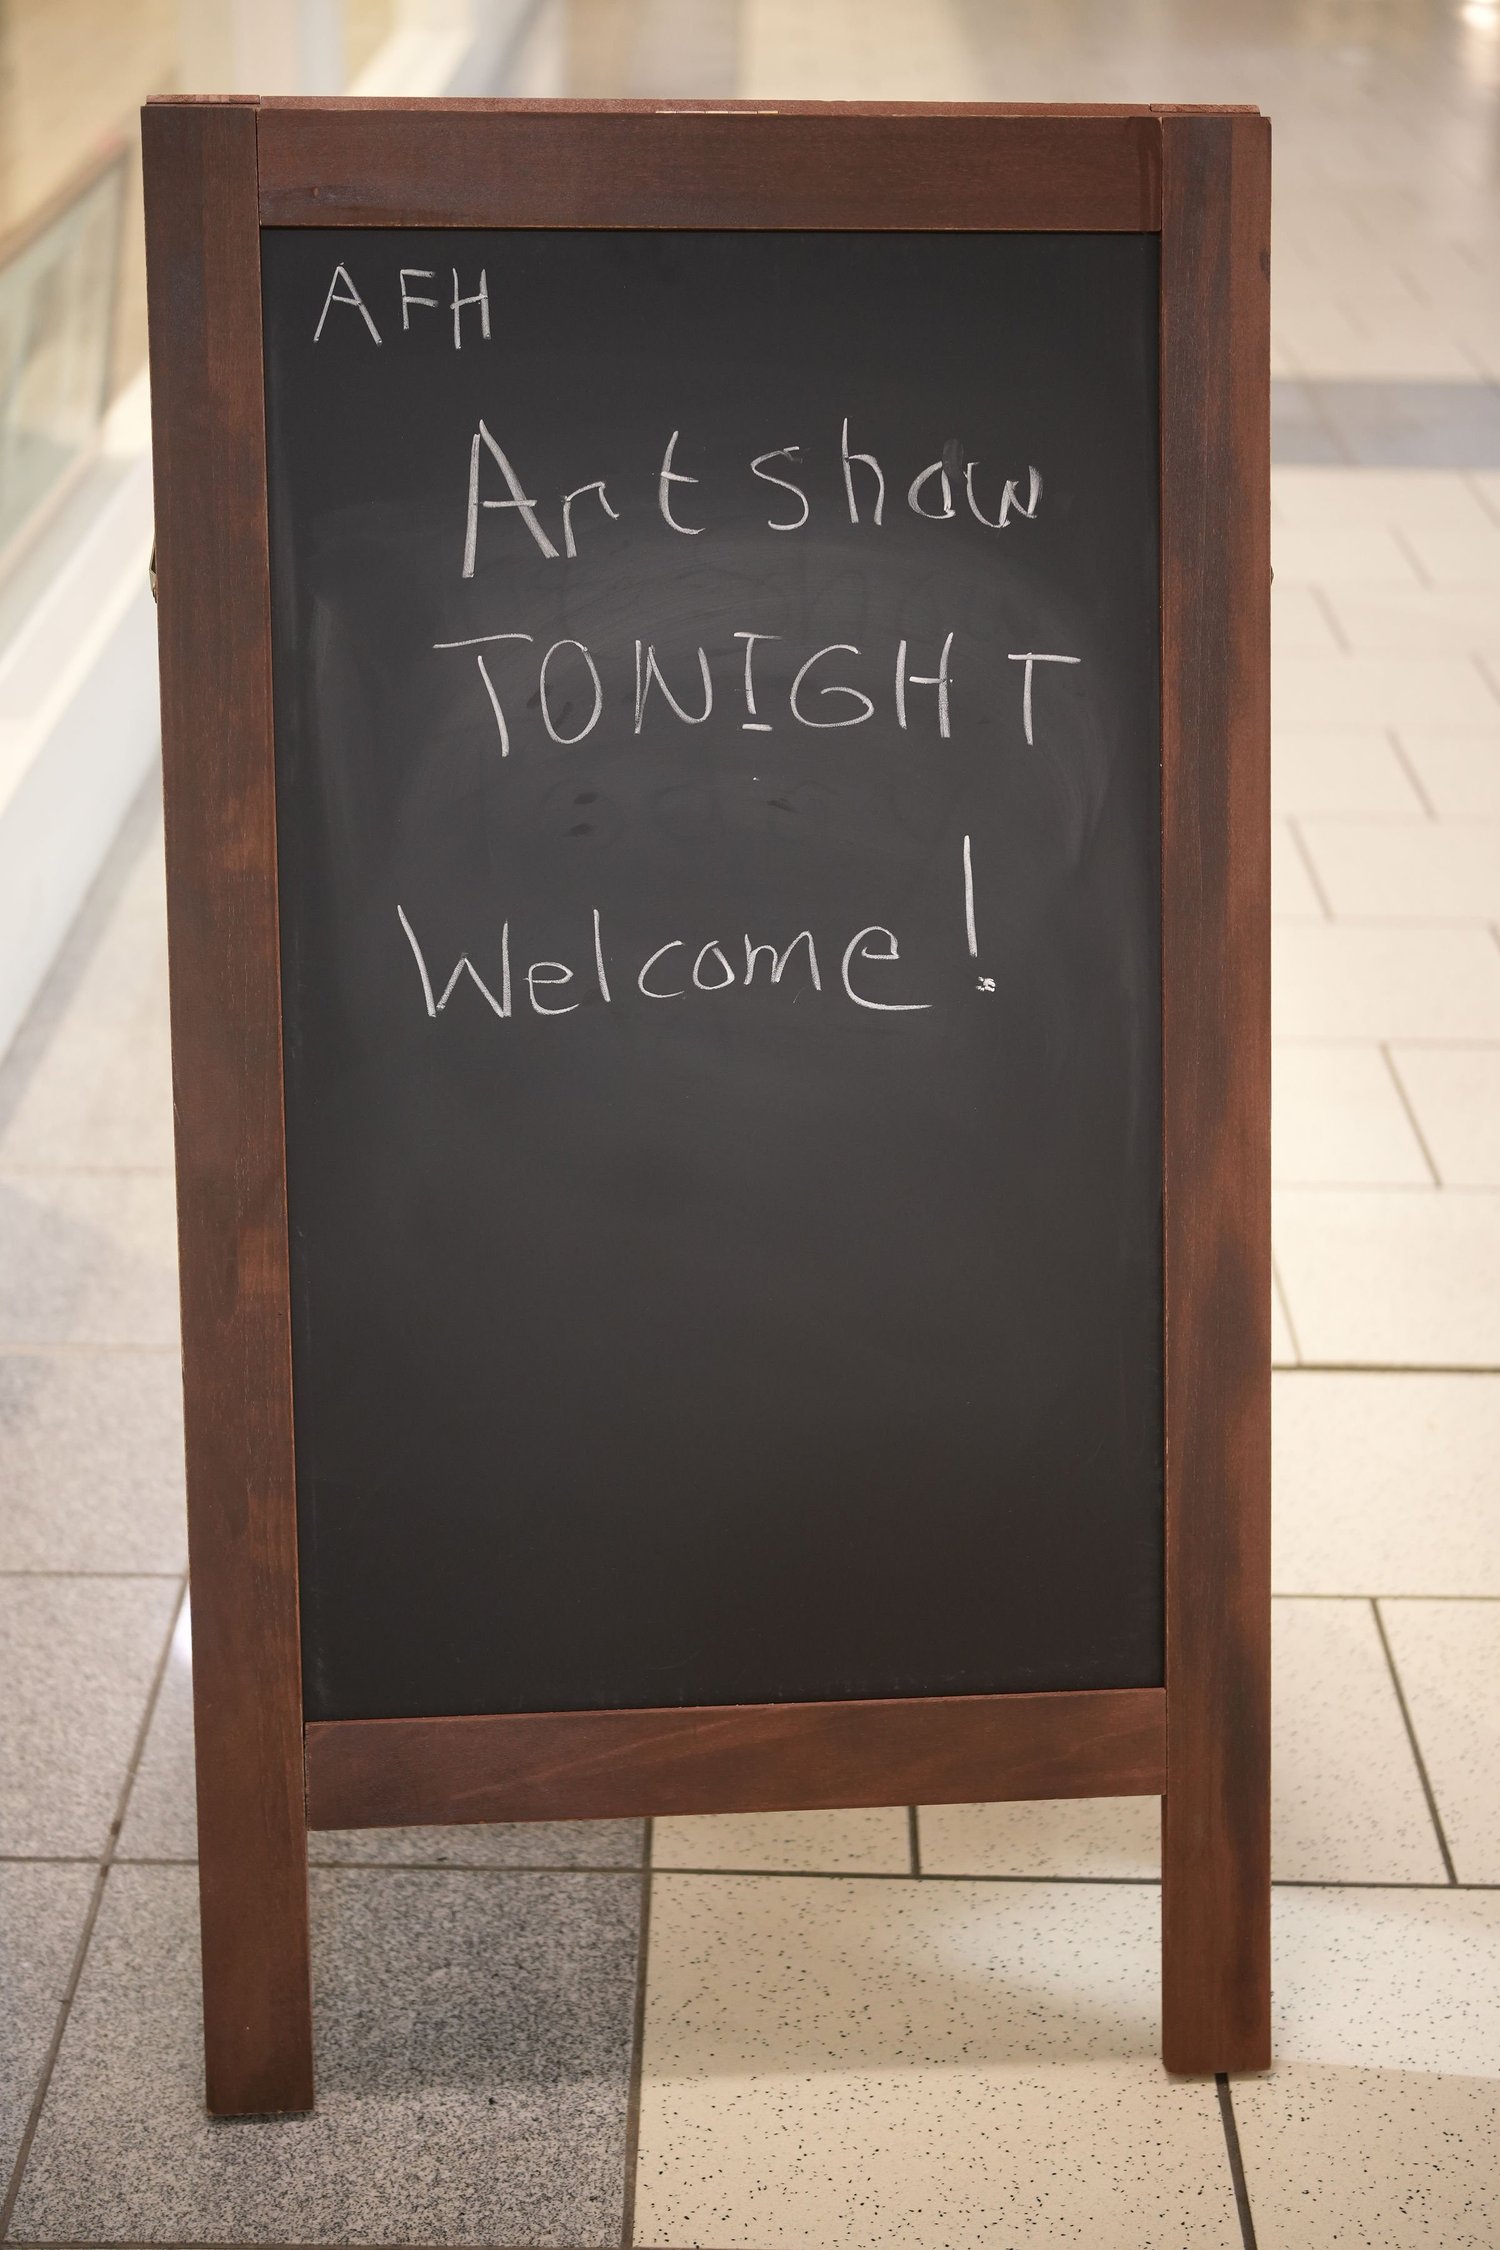 AFH
Art show
TONIGHT
Welcome!